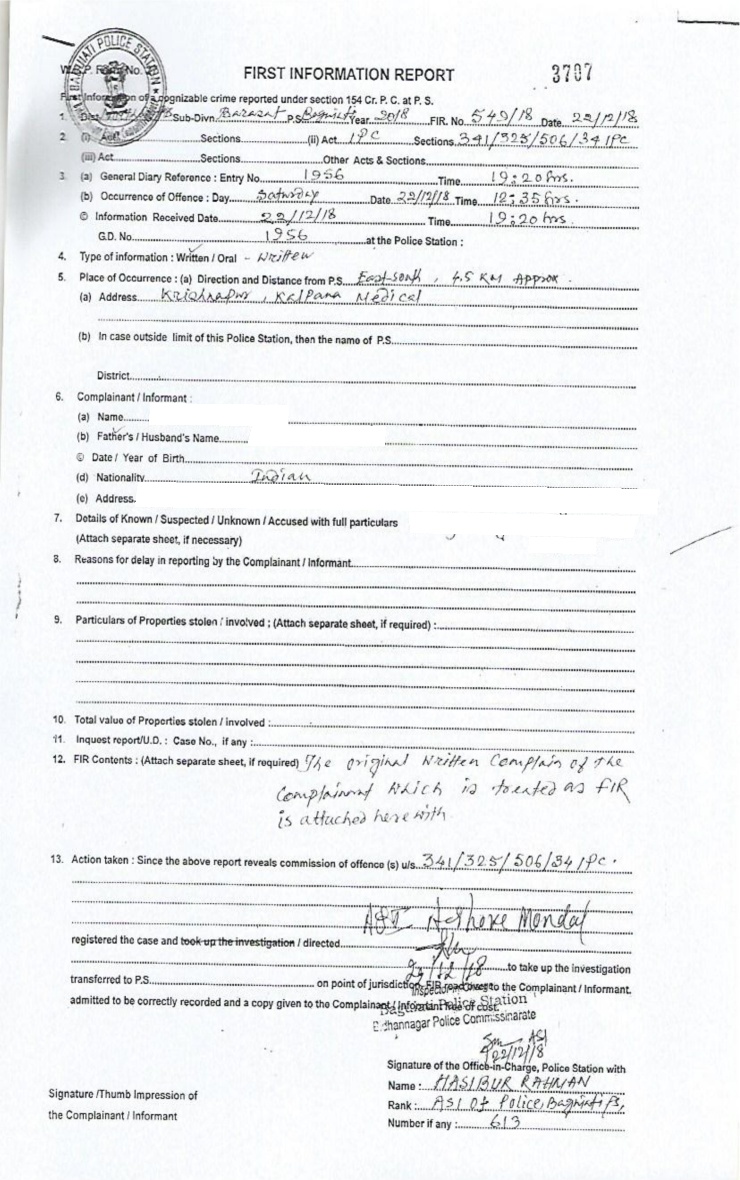 BAGUIATI POLICE STATION
W.B.P. Form No.
FIRST INFORMATION REPORT 3707
First Information of a cognizable crime reported under section 154 Cr. P. C. at P. S.
1. Sub-Divn. Barasat P.S. Baguiati Year 2018 FIR. No. 549/18 Date 22/12/18
2. (i) Act Sections (ii) Act IPC Sections 341/325/506/34 IPC
(iii) Act Sections Other Acts & Sections
3. (a) General Diary Reference : Entry No. 1956 Time 19:20 hrs.
(b) Occurrence of Offence : Day Saturday Date 22/12/18 Time 12:35 hrs.
© Information Received Date 22/12/18 Time 19:20 hrs.
G.D. No. 1956 at the Police Station :
4. Type of information : Written / Oral - Written
5. Place of Occurrence : (a) Direction and Distance from P.S. East-south, 4.5 KM Approx.
(a) Address Krishnapur, Kalpana Medical
(b) In case outside limit of this Police Station, then the name of P.S.
District
6. Complainant / Informant :
(a) Name
(b) Father's / Husband's Name
© Date / Year of Birth
(d) Nationality Indian
(e) Address.
7. Details of Known / Suspected / Unknown / Accused with full particulars
(Attach separate sheet, if necessary)
8. Reasons for delay in reporting by the Complainant / Informant
9. Particulars of Properties stolen / involved ; (Attach separate sheet, if required) :
10. Total value of Properties stolen / involved :
11. Inquest report/U.D. : Case No., if any :
12. FIR Contents : (Attach separate sheet, if required) The original written Complain of the
Complainant which is treated as FIR
is attached here with
13. Action taken : Since the above report reveals commission of offence (s) u/s. 341/325/506/34 IPC.
ASI Ashore Mondal
registered the case and took up the investigation / directed
22/12/18 to take up the investigation
transferred to P.S. on point of jurisdiction FIR read over to the Complainant / Informant.
admitted to be correctly recorded and a copy given to the Complainant / Informant free of cost.
Police Station
Bidhannagar Police Commissinarate
ASI
22/12/18
Signature of the Office-in-Charge, Police Station with
Name : HASIBUR RAHMAN
Signature /Thumb Impression of
Rank : ASI Of Police, Baguiati PS,
the Complainant / Informant
Number if any : 613